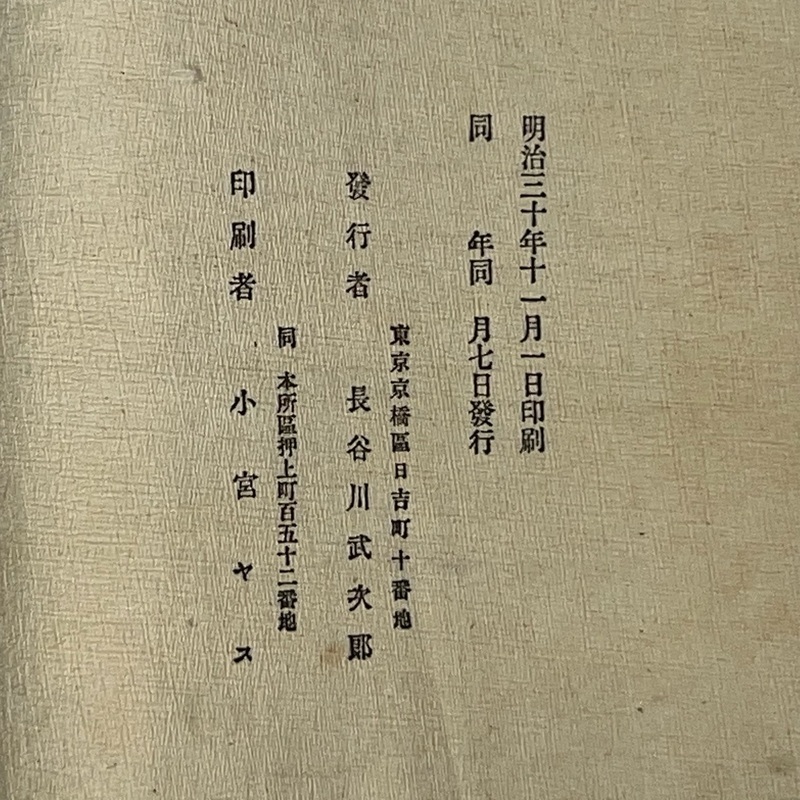 明治三十年十一月一日印刷
同 年同 月七日發行
東京京橋區日吉町十番地
發行者 長谷川武次郎
同 本所區押上町百五十二番地
印刷者 小宮ヤス